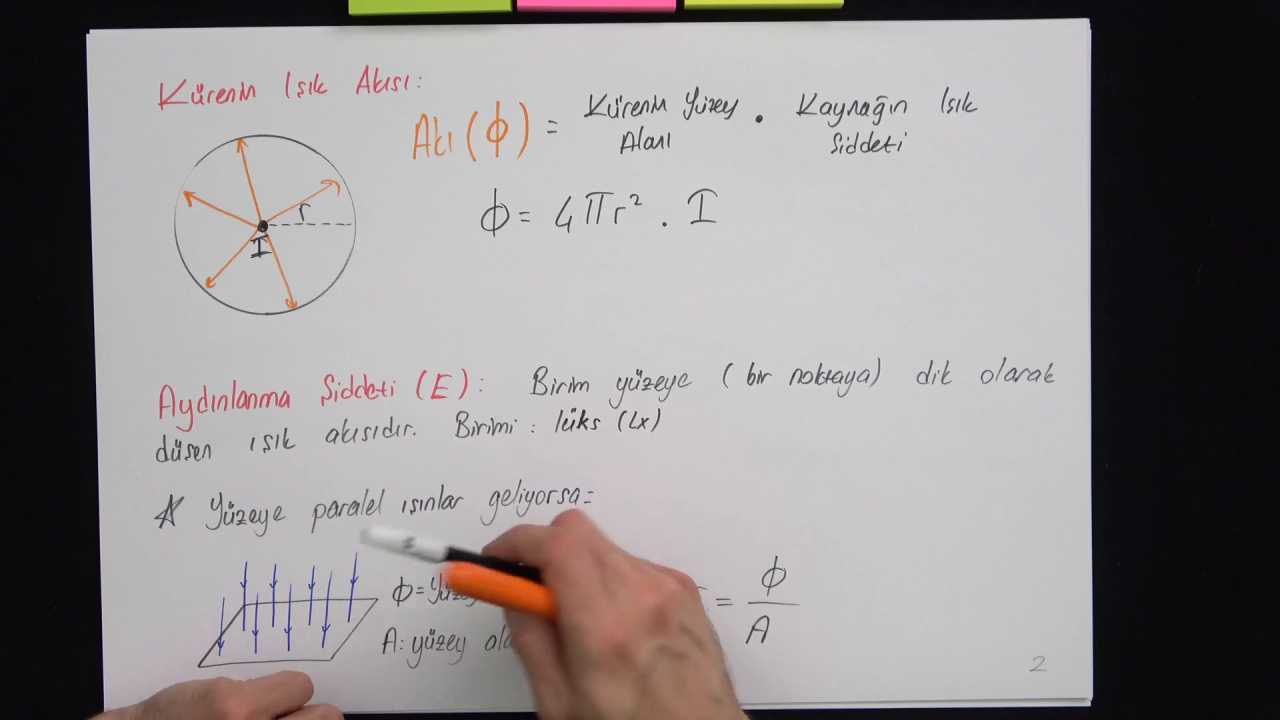 Kürenin Işık Akısı:
Akı (ϕ) = Kürenin Yüzey Alanı . Kaynağın Işık Şiddeti
r
I
ϕ = 4πr² . I
Aydınlanma Şiddeti (E): Birim yüzeye (bir noktaya) dik olarak
düşen ışık akısıdır. Birimi: lüks (Lx)
Yüzeye paralel ışınlar geliyorsa=
ϕ=
= ϕ/A
A: yüzey
2